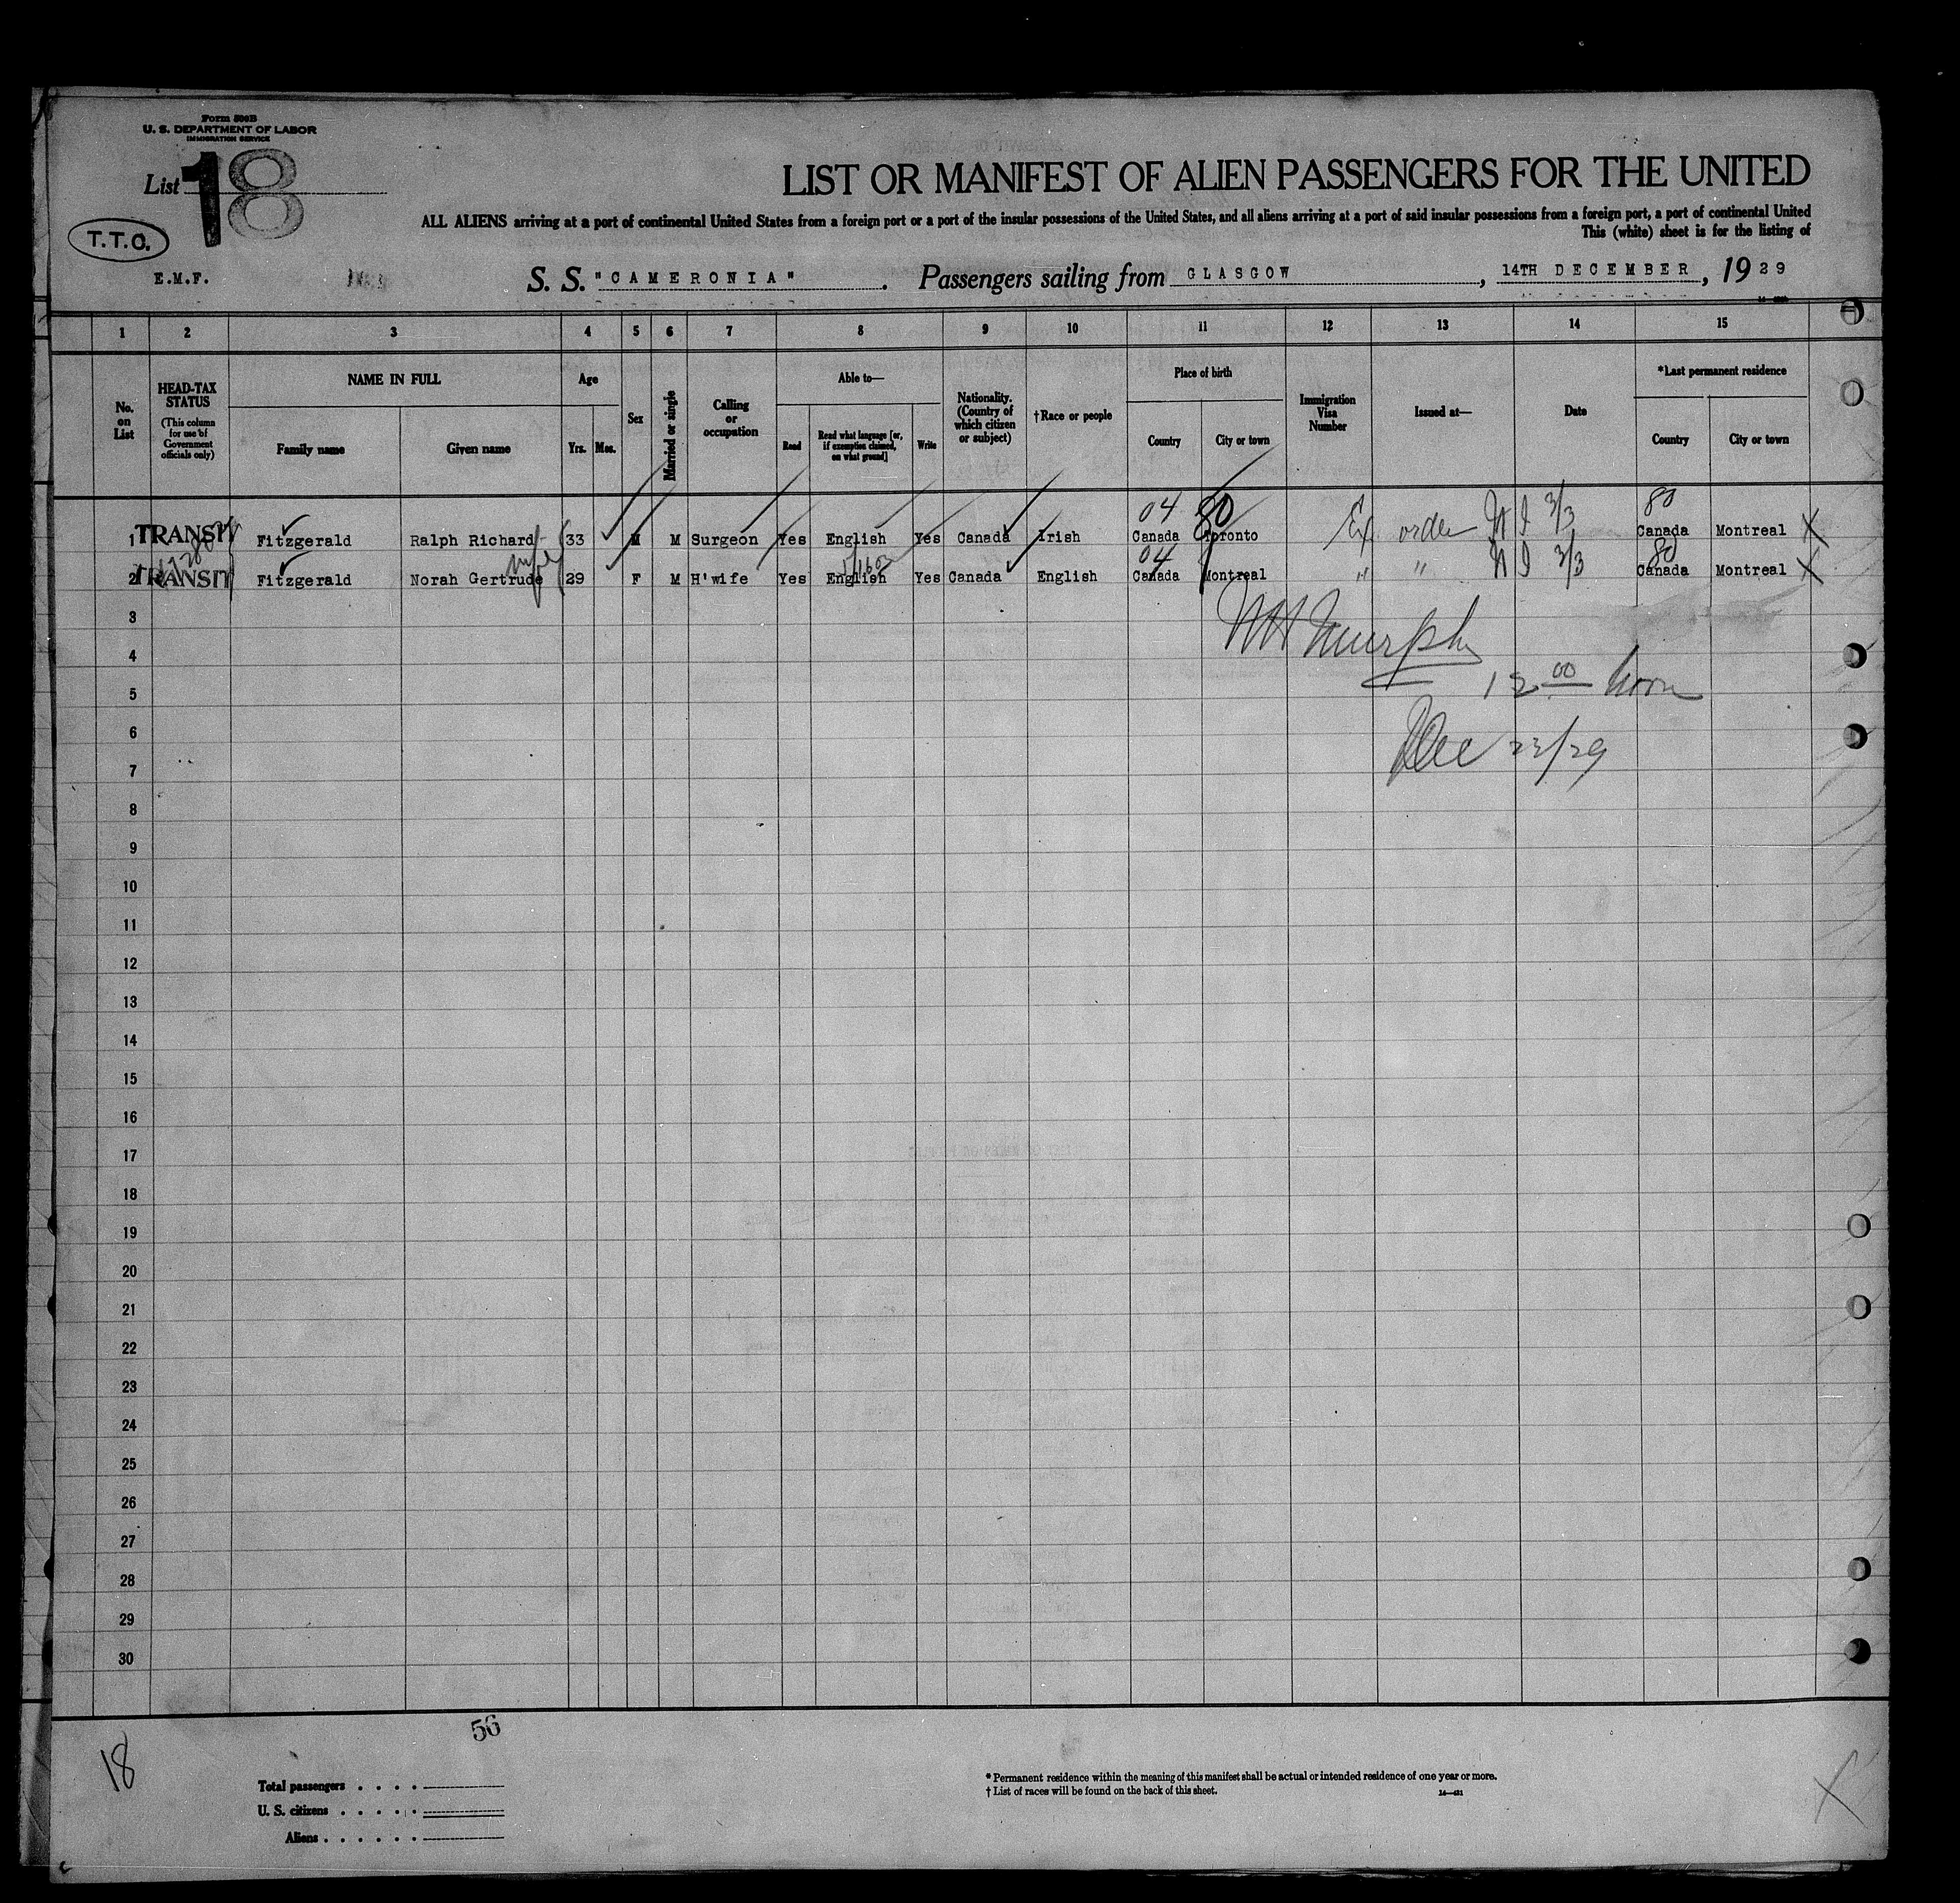 Form 500B
U. S. DEPARTMENT OF LABOR
IMMIGRATION SERVICE
List 18
T.T.O.
E.M.F.
LIST OR MANIFEST OF ALIEN PASSENGERS FOR THE UNITED
ALL ALIENS arriving at a port of continental United States from a foreign port or a port of the insular possessions of the United States, and all aliens arriving at a port of said insular possessions from a foreign port, a port of continental United
This (white) sheet is for the listing of
S. S. "CAMERONIA". Passengers sailing from GLASGOW, 14TH DECEMBER, 19 29
1 2 3 4 5 6 7 8 9 10 11 12 13 14 15
No. on List
HEAD-TAX STATUS
(This column for use of Government officials only)
NAME IN FULL
Family name Given name
Age
Yrs. Mos.
Sex
Married or single
Calling or occupation
Able to—
Read
Read what language [or, if exemption claimed, on what ground]
Write
Nationality. (Country of which citizen or subject)
†Race or people
Place of birth
Country City or town
Immigration Visa Number
Issued at—
Date
*Last permanent residence
Country City or town
04 80 80
1 TRANSIT Fitzgerald Ralph Richard 33 M M Surgeon Yes English Yes Canada Irish Canada Toronto Ex order N I 3/3 Canada Montreal X
wife 04 80
2 TRANSIT Fitzgerald Norah Gertrude 29 F M H'wife Yes English Yes Canada English Canada Montreal " " N I 3/3 Canada Montreal X
3
Murphy
4
12 00 noon
5
6
Dec 23/29
7
8
9
10
11
12
13
14
15
16
17
18
19
20
21
22
23
24
25
26
27
28
29
30
56
18
Total passengers . . . .
U. S. citizens . . . . .
Aliens . . . . . .
* Permanent residence within the meaning of this manifest shall be actual or intended residence of one year or more.
† List of races will be found on the back of this sheet.
X